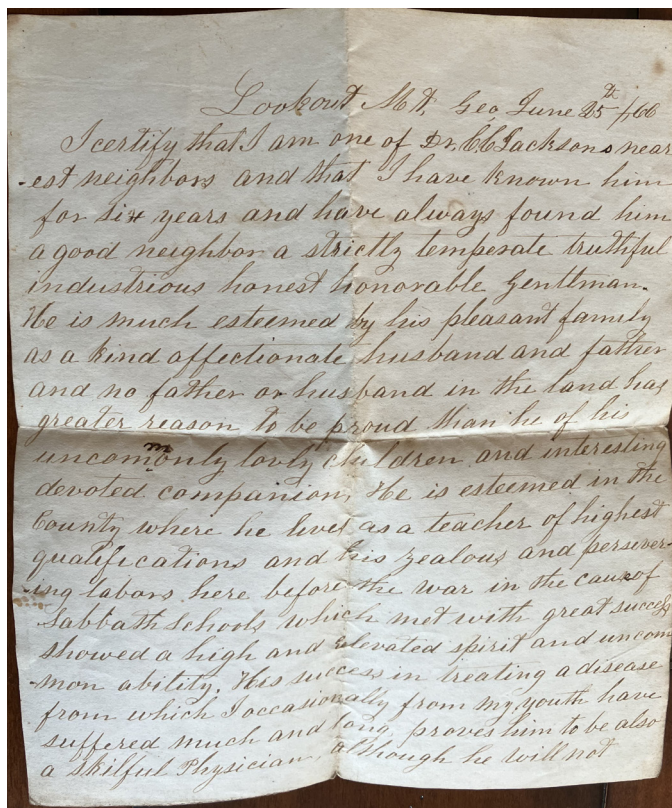 Lookout Mt, Geo June 25th /66
I certify that I am one of Dr. E C Jacksons near
-est neighbors and that I have known him
for six years and have always found him
a good neighbor a strictly temperate truthful
industrious honest honorable Gentleman.
He is much esteemed by his pleasant family
as a kind affectionate husband and father
and no father or husband in the land has
greater reason to be proud than he of his
uncommonly lovly children and interesting
devoted companion, He is esteemed in the
County where he lives as a teacher of highest
qualifications and his zealous and persever-
-ing labors here before the war in the cause of
Sabbath Schools which met with great success
showed a high and elevated spirit and uncom
mon ability. His success in treating a disease
from which I occasionally from my youth have
suffered much and long, proves him to be also
a skilful Physician, although he will not